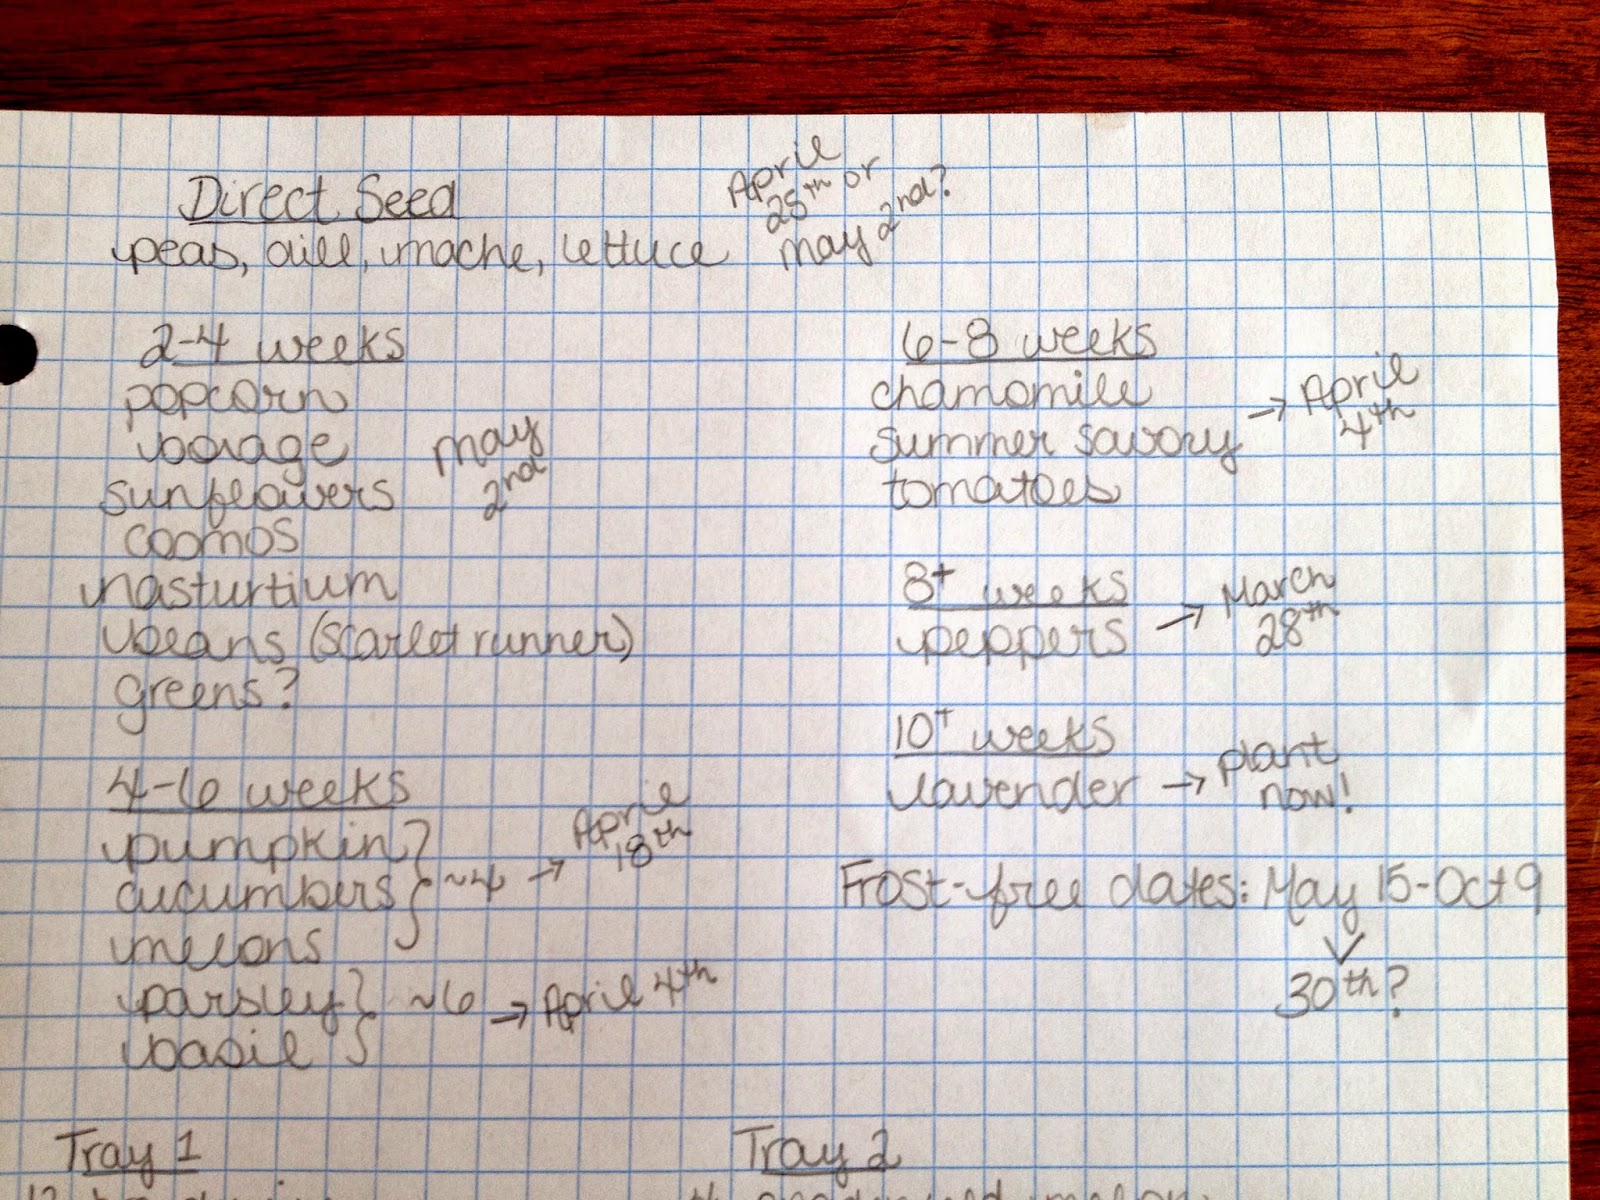 Direct Seed
peas, dill, mache, lettuce
April
25th or
May 2nd?
2-4 weeks
popcorn
borage
sunflowers
cosmos
nasturtium
beans (scarlet runner)
greens?
May
2nd
4-6 weeks
pumpkin
cucumbers
melons
~4 → April
18th
parsley
basil
~6 → April 4th
6-8 weeks
chamomile
summer savory
tomatoes
→ April
4th
8+ weeks
peppers → March
28th
10+ weeks
lavender → plant
now!
Frost-free dates: May 15-Oct 9
30th?
Tray 1
Tray 2